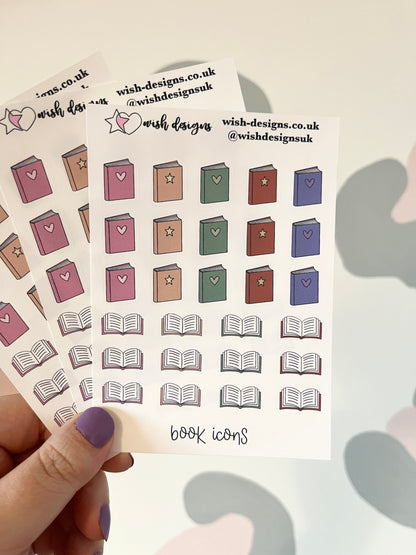 wish-designs.co.uk
wish-designs.co.uk
@wishdesignsuk
wish designs
wish-designs.co.uk
@wishdesignsuk
book icons